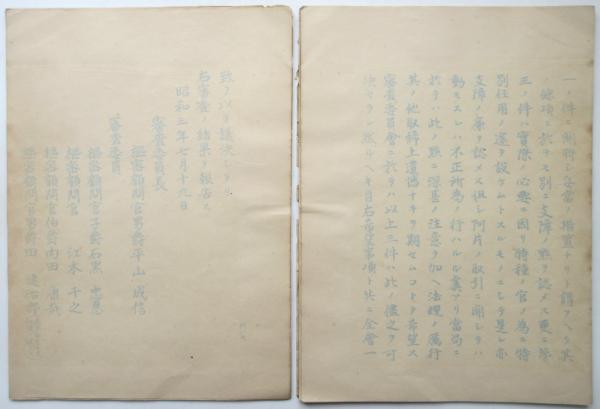 一ノ件ニ附帶シ妥當ノ措置ナリト謂フヘク其
ノ條項ニ於テモ別ニ支障ノ點ヲ認メス更ニ第
三ノ件ハ實際ノ必要ニ因リ特種ノ官ノ爲ニ特
別任用ノ途ヲ設ケムトスルモノニシテ是レ亦
支障ノ廉ヲ認メス但シ阿片ノ取引ニ關シテハ
動モスレハ不正所爲ノ行ハルル虞アリ當局ニ
於テハ此ノ點ニ深甚ノ注意ヲ加ヘ法規ノ厲行
其ノ他取締上遺憾ナキヲ期セムコトヲ希望ス
審査委員會ニ於テハ以上三件ハ此ノ儘之ヲ可
決セラレ然ルヘキ旨右希望事項ト共ニ全會一
致ヲ以テ議決シタリ
右審査ノ結果ヲ報告ス
昭和三年七月十九日
審査委員長
樞密顧問官男爵平山成信
審査委員
樞密顧問官子爵石黑忠悳
樞密顧問官江木千之
樞密顧問官伯爵內田康哉
樞密顧問官男爵田健治郎